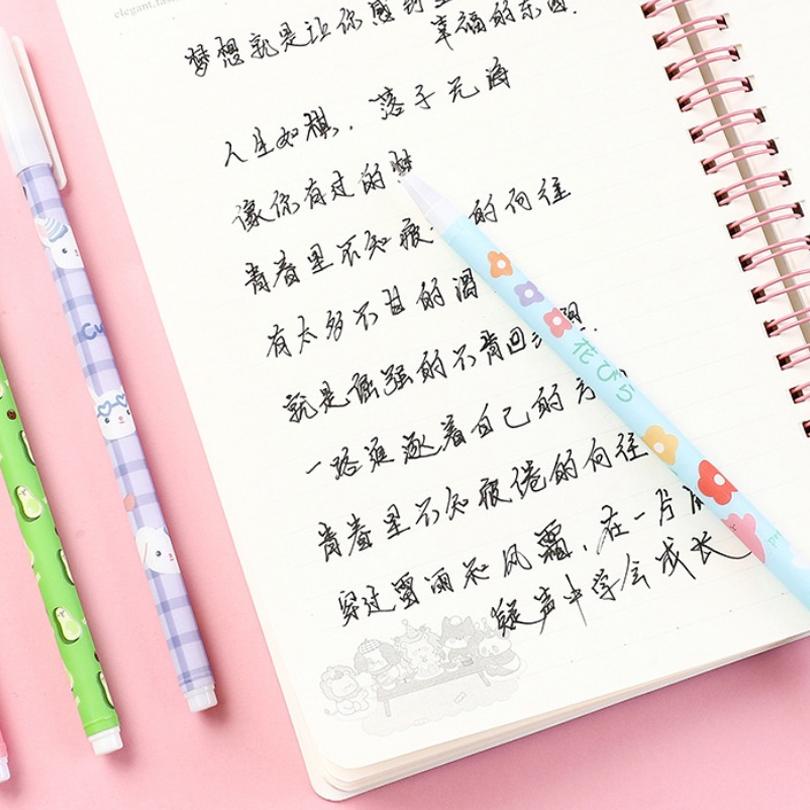 elegant.fas
梦想就是让你感到
幸福的东西.
人生如棋，落子无海
像你有过的梦
青春里不知疲 的向往
有太多不甘的泪
就是倔强的不肯回
一路追逐着自己的方
青春里不知疲倦的向往
穿过雷雨和风霜，在一片
疑声中学会成长
Cu
花びら